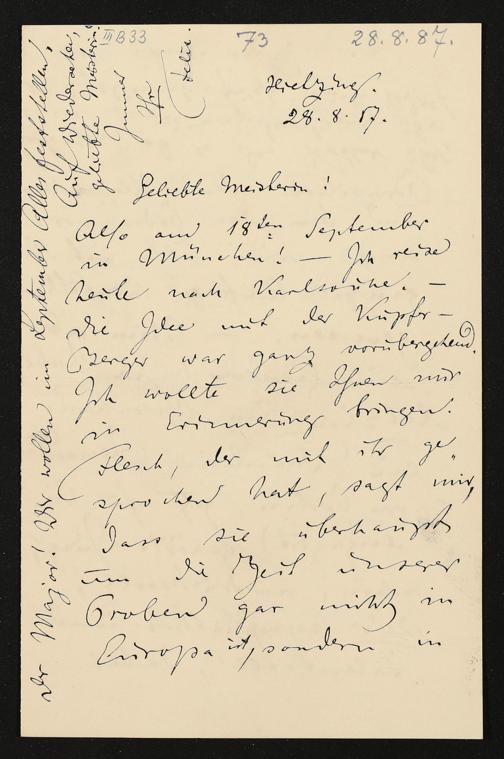 III B 33
73
28.8.87.
Hietzing.
28. 8. 87.
Geliebte Meisterin!
Also am 18ten September
in München! — Ich reise
heute nach Karlsruhe. —
Die Idee mit der Kupfer-
Berger war ganz vorübergehend.
Ich wollte sie Ihnen nur
in Erinnerung bringen.
Flesch, der mit ihr ge„
sprochen hat, sagt mir,
dass sie überhaupt
um die Zeit unserer
Proben gar nicht in
Europa ist, sondern in
der Major! Wir wollen im September Alles feststellen,
Auf Wiedersehen,
geliebte Meisterin!
Immer
Ihr
Felix.